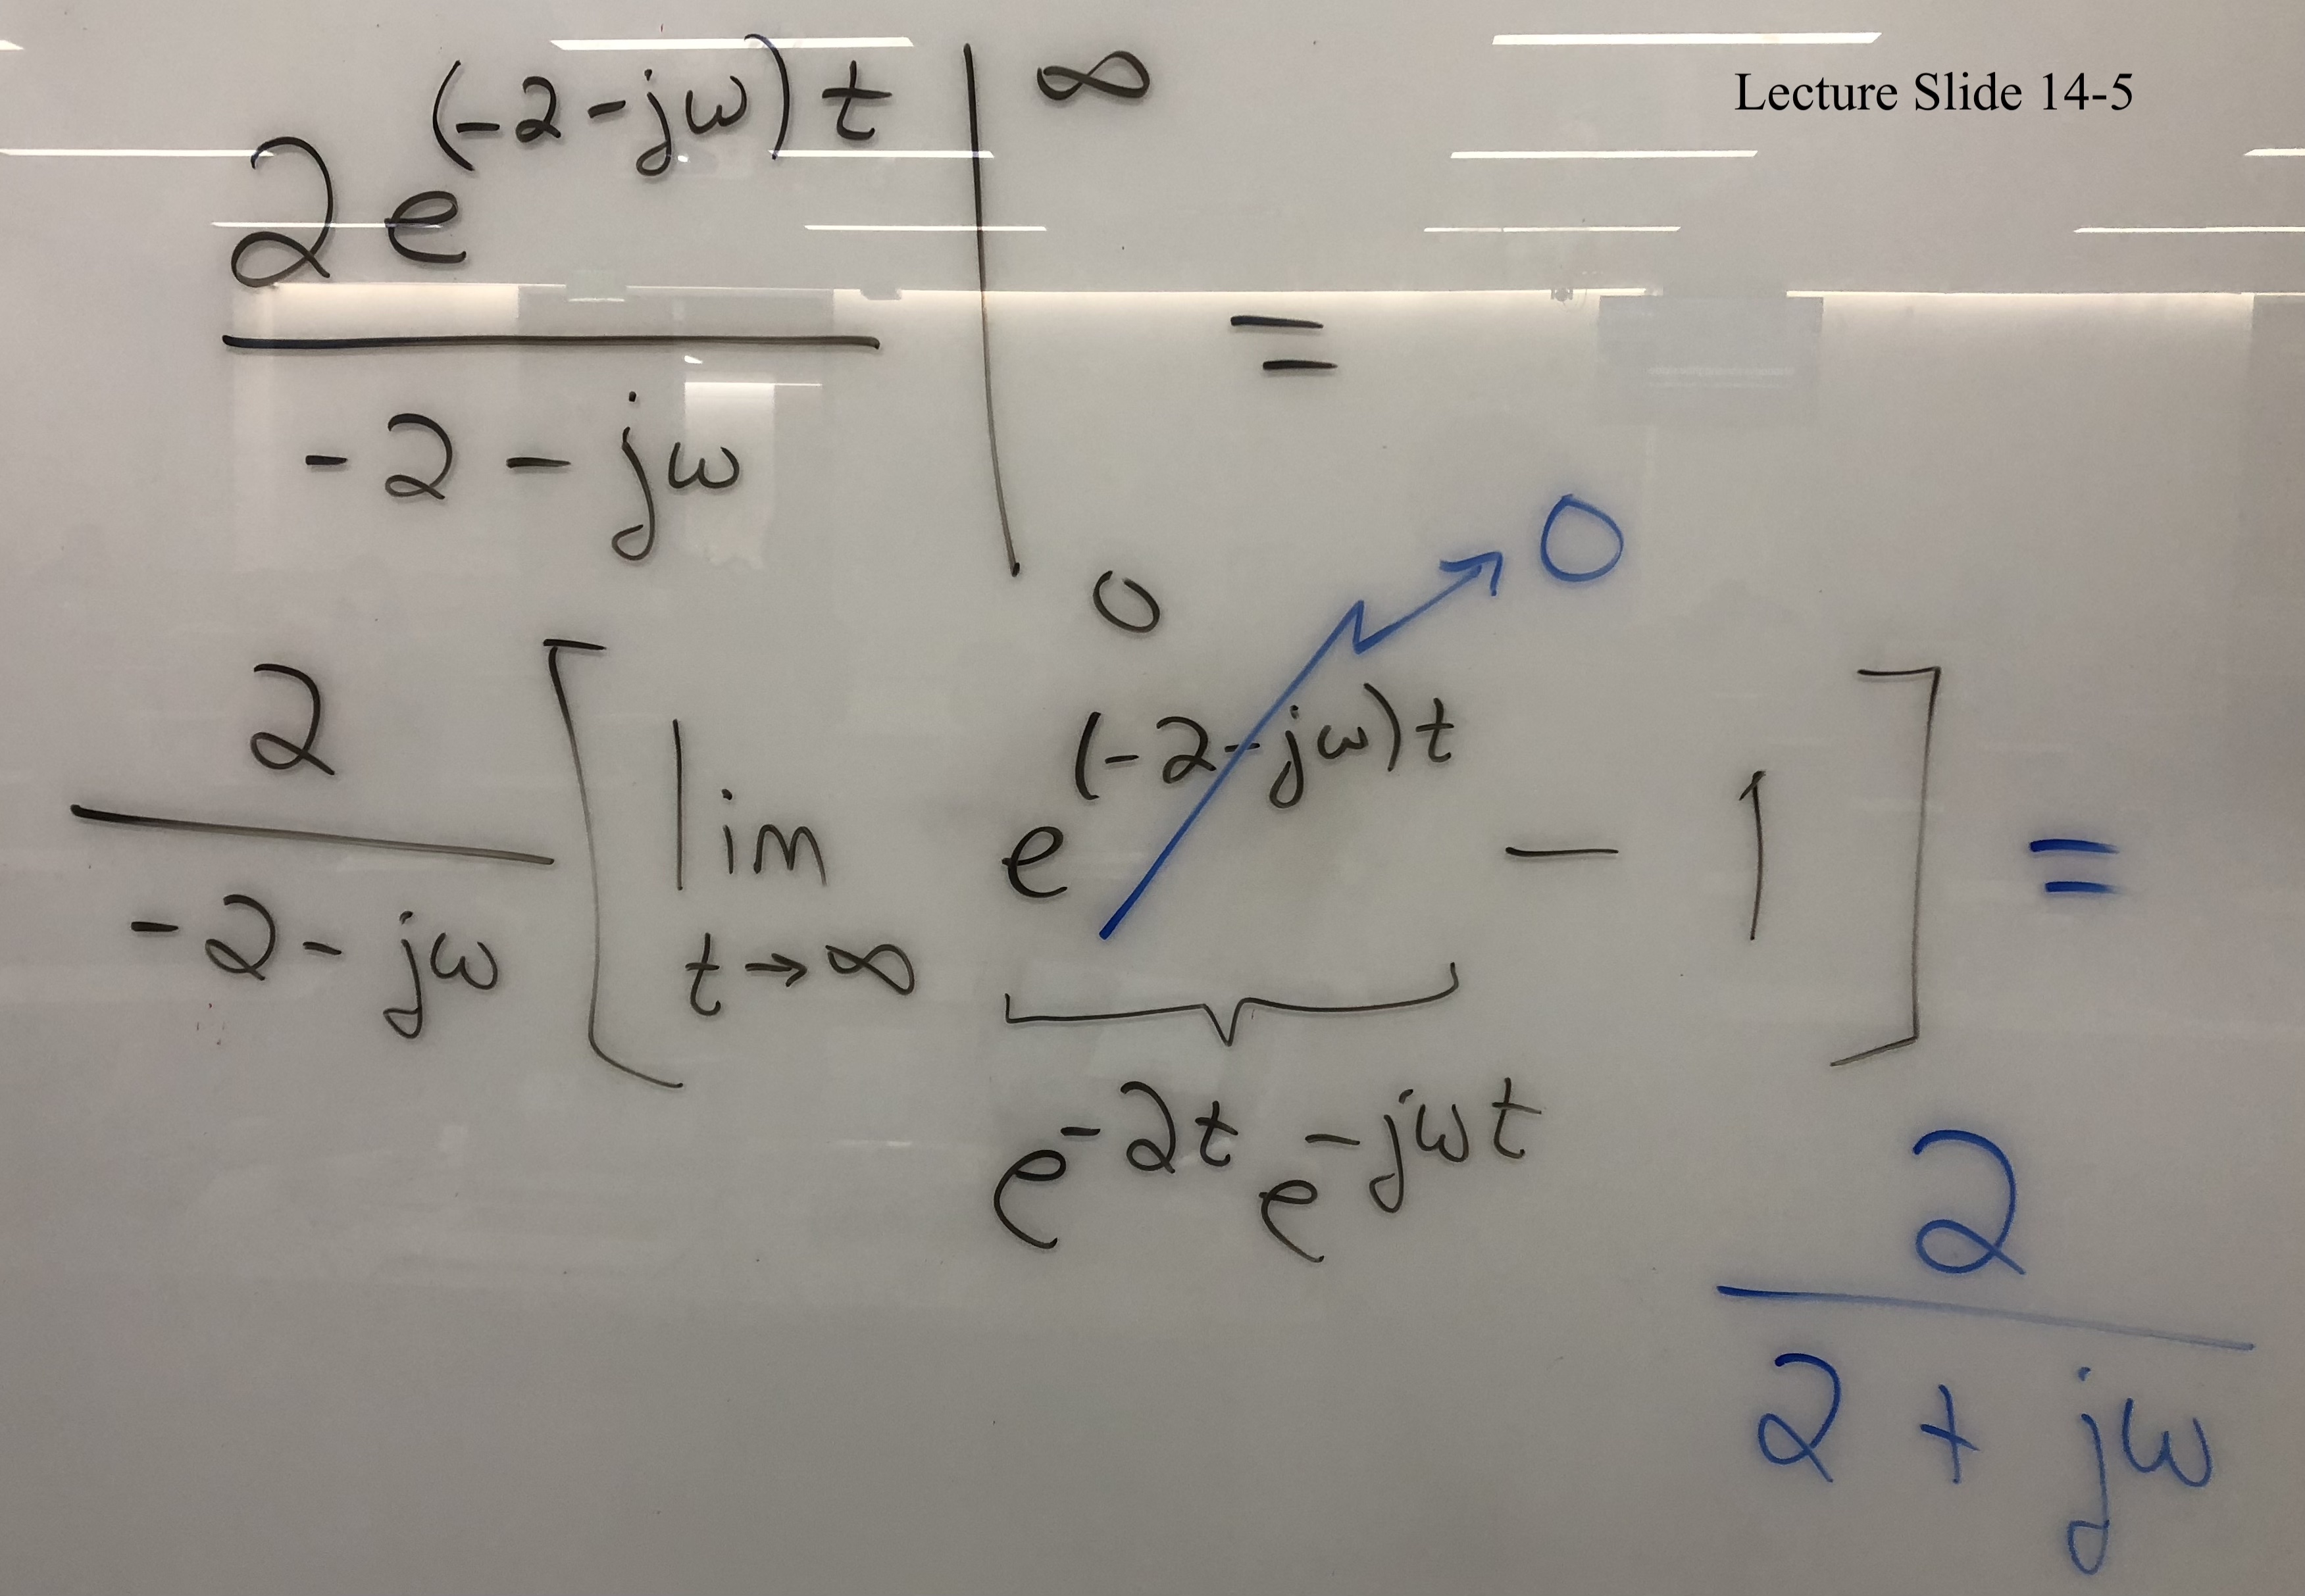 Lecture Slide 14-5
2e^{(-2-jω)t} / (-2-jω) |_0^∞ =
2 / (-2-jω) [ lim_{t→∞} e^{(-2-jω)t} → 0 - 1 ] =
e^{-2t} e^{-jωt}
2 / (2 + jω)